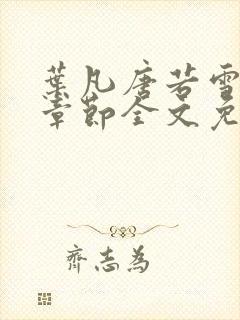 葉凡唐若雪
章節全文免
齊志為